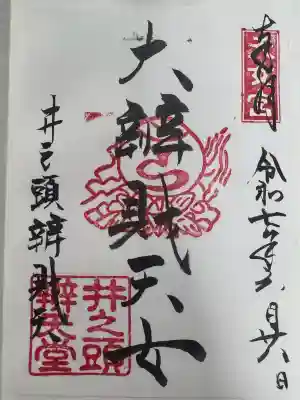 奉拝
令和七年六月廿八日
大辨財天女
井之頭辨財天
井之頭
辨天堂